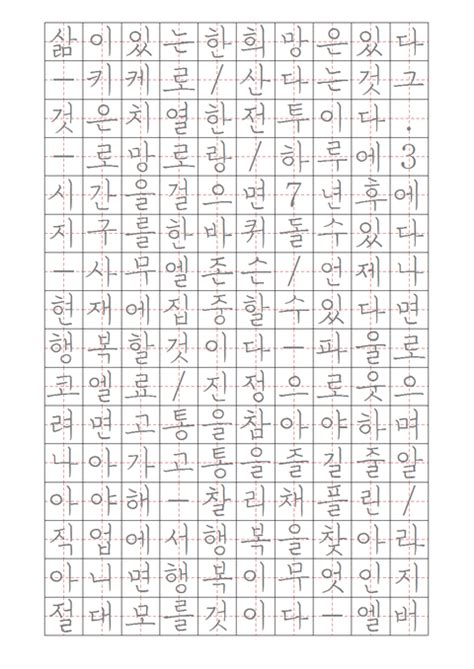 삶이있는한희망은있다
-키케로/산다는것그
것은치열한전투이다.
-로망로랑/하루에3
시간을걸으면7년후에
지구를한바퀴돌수있다
-사무엘존슨/언제나
현재에집중할수있다면
행복할것이다-파울로
코엘료/진정으로웃으
려면고통을참아야하며
나아가고통을즐길줄알
아야해-찰리채플린/
직업에서행복을찾아라
아니면행복이무엇인지
절대모를것이다-엘버